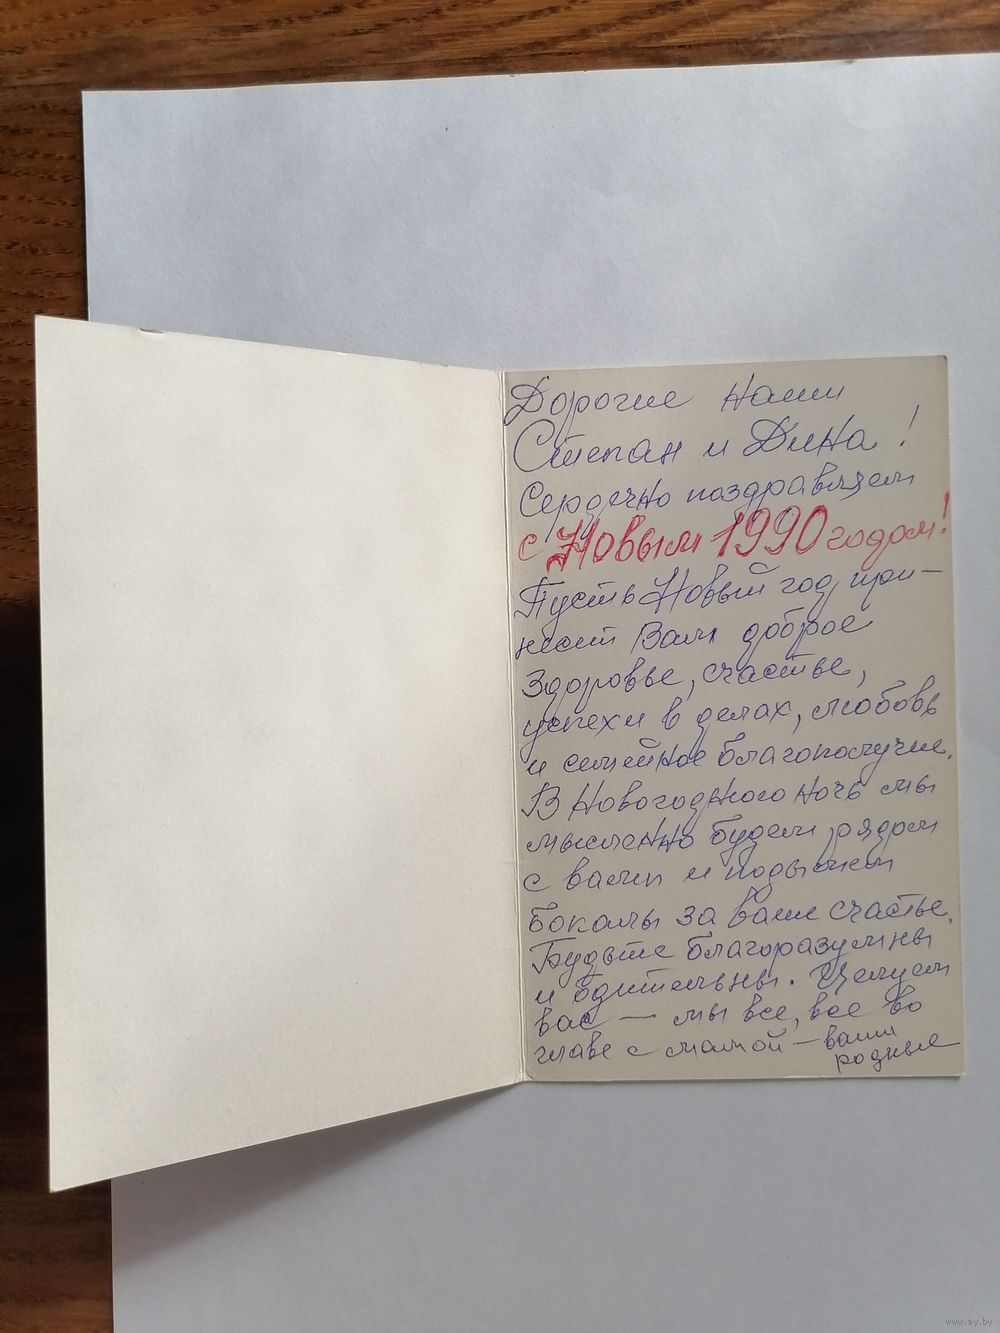 Дорогие наши
Степан и Дина!
Сердечно поздравляем
с Новым 1990 годом!
Пусть Новый год при-
несёт Вам доброе
здоровье, счастье,
успехи в делах, любовь
и семейное благополучие.
В Новогоднюю ночь мы
мысленно будем рядом
с вами и подымем
бокалы за ваше счастье.
Будьте благоразумны
и бдительны. Целуем
вас — мы все, все во
главе с мамой — ваши
родные
www.ay.by